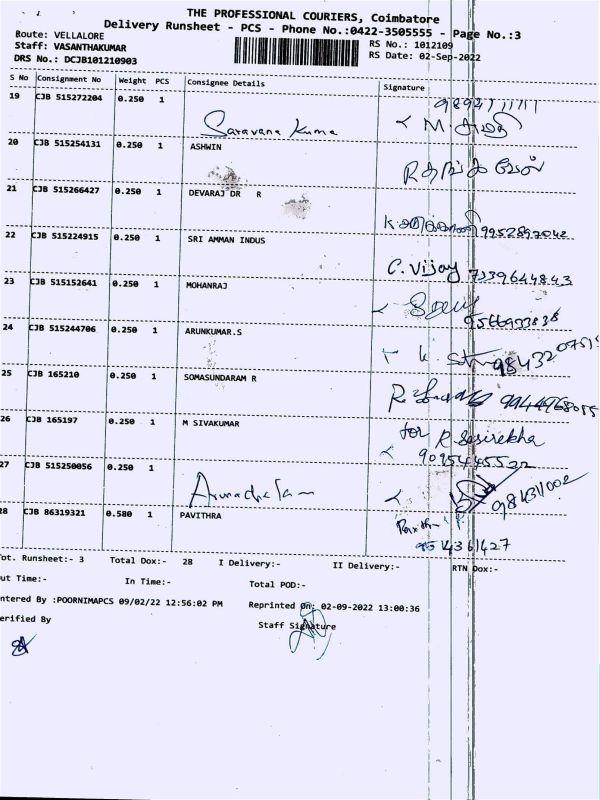 THE PROFESSIONAL COURIERS, Coimbatore
Delivery Runsheet - PCS - Phone No.:0422-3505555 - Page No.:3
Route: VELLALORE RS No.: 1012109
Staff: VASANTHAKUMAR RS Date: 02-Sep-2022
DRS No.: DCJB101210903
S No Consignment No Weight PCS Consignee Details Signature
19 CJB 515272204 0.250 1
Saravana Kuma M.
20 CJB 515254131 0.250 1 ASHWIN
21 CJB 515266427 0.250 1 DEVARAJ DR R
9952897042
22 CJB 515224915 0.250 1 SRI AMMAN INDUS
C. Vijay 7339644843
23 CJB 515152641 0.250 1 MOHANRAJ
9566933838
24 CJB 515244706 0.250 1 ARUNKUMAR.S
K. 98432 0751
25 CJB 165210 0.250 1 SOMASUNDARAM R
R. 9944968015
26 CJB 165197 0.250 1 M SIVAKUMAR
for R. Sasirekha
9095445522
27 CJB 515250056 0.250 1
Arunachalam
28 CJB 86319321 0.580 1 PAVITHRA
9514361427
ot. Runsheet:- 3 Total Dox:- 28 I Delivery:- II Delivery:- RTN Dox:-
ut Time:- In Time:- Total POD:-
ntered By :POORNIMAPCS 09/02/22 12:56:02 PM Reprinted On: 02-09-2022 13:00:36
erified By Staff Signature